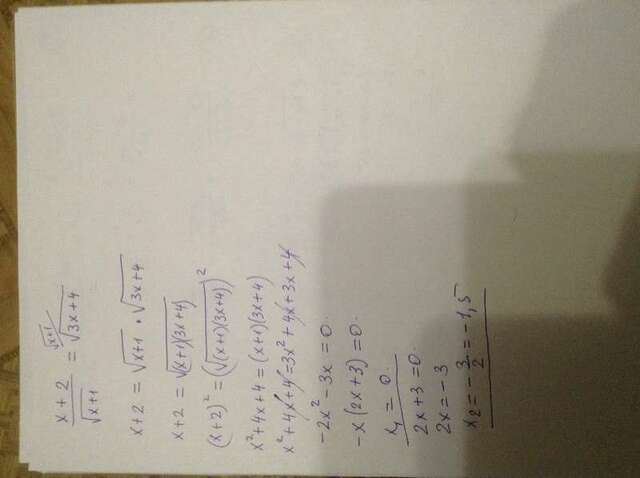 x + 2 / √x+1 = √x+1 / √3x+4
x+2 = √x+1 · √3x+4
x+2 = √(x+1)(3x+4)
(x+2)² = (√(x+1)(3x+4))²
x²+4x+4 = (x+1)(3x+4)
x²+4x+4=3x²+4x+3x+4
-2x²-3x =0.
-x(2x+3)=0.
x₁ = 0.
2x+3=0.
2x=-3
x₂=-3/2=-1,5